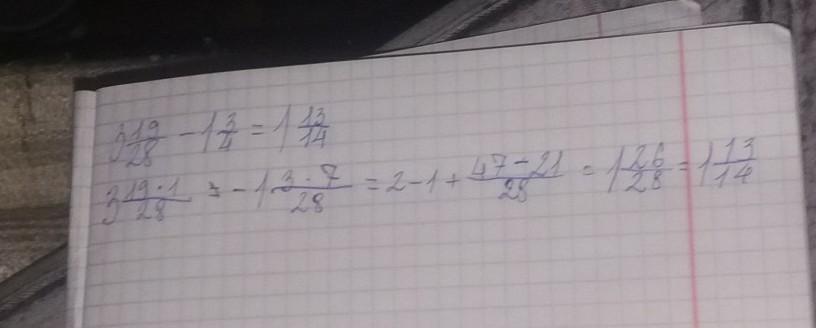 3 19/28 - 1 3/4 = 1 13/14
3 19·1/28 = - 1 3·7/28 = 2-1+ 47-21/28 = 1 26/28 = 1 13/14